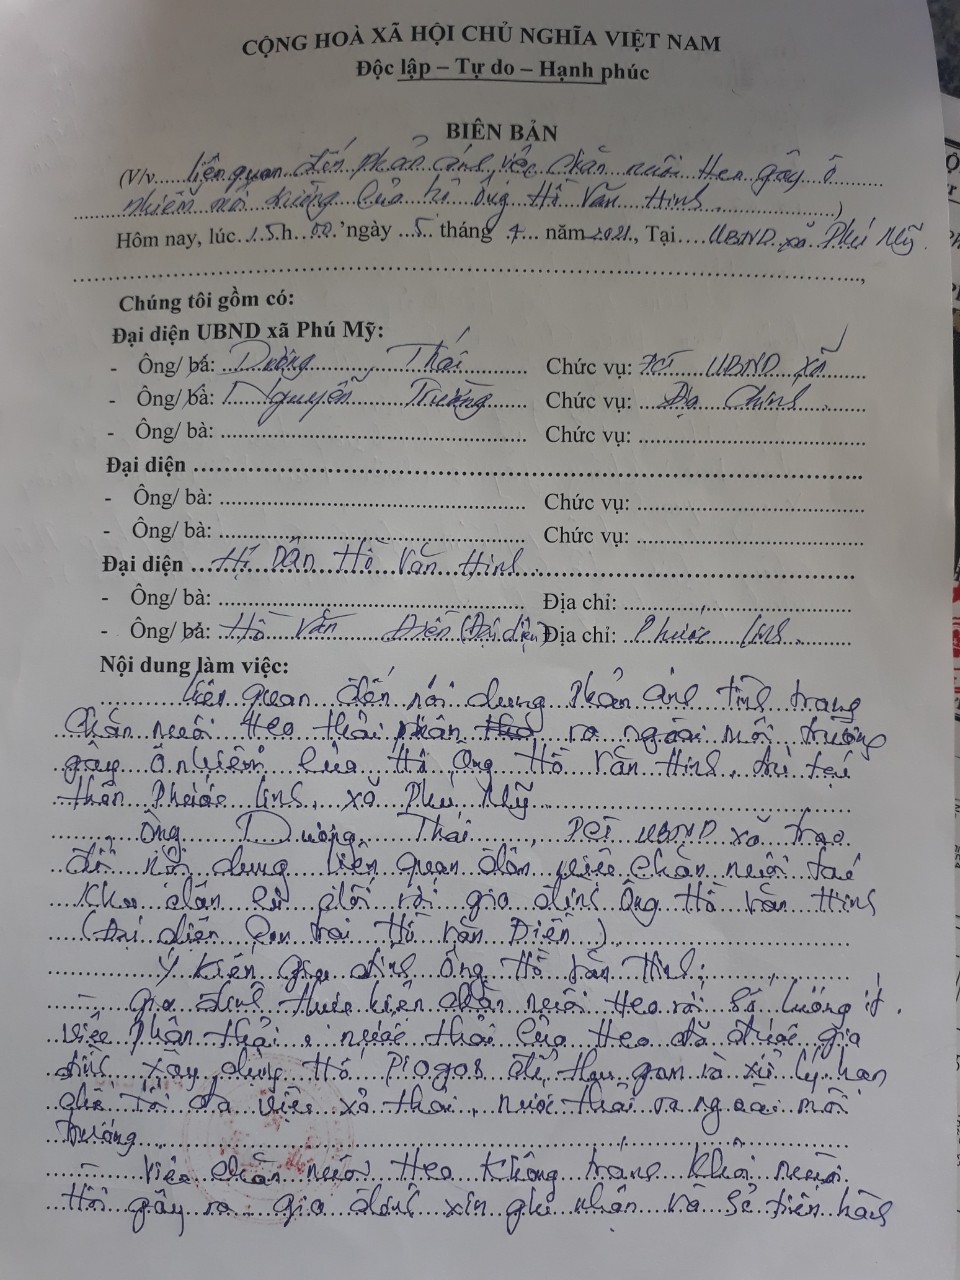 CỘNG HOÀ XÃ HỘI CHỦ NGHĨA VIỆT NAM
Độc lập – Tự do – Hạnh phúc
BIÊN BẢN
(V/v Liên quan đến phản ánh việc chăn nuôi Heo gây ô
nhiễm môi trường của hộ ông Hồ Văn Hinh)
Hôm nay, lúc 15h 00 'ngày 5 tháng 4 năm 2021, Tại UBND xã Phú Mỹ
Chúng tôi gồm có:
Đại diện UBND xã Phú Mỹ:
- Ông/ bà: Dương Thái Chức vụ: PCT UBND xã
- Ông/ bà: Nguyễn Trường Chức vụ: Địa Chính
- Ông/ bà: Chức vụ:
Đại diện
- Ông/ bà: Chức vụ:
- Ông/ bà: Chức vụ:
Đại diện Hộ Dân Hồ Văn Hinh
- Ông/ bà: Địa chỉ:
- Ông/ bà: Hồ Văn Điền (Đại diện) Địa chỉ: Phước Linh
Nội dung làm việc:
Liên quan đến nội dung Phản ánh tình trạng
chăn nuôi Heo thải phân ra ngoài môi trường
gây ô nhiễm của Hộ ông Hồ Văn Hinh, trú tại
thôn Phước Linh, xã Phú Mỹ
Ông Dương Thái, PCT UBND xã trao
đổi nội dung liên quan đến việc chăn nuôi tại
khu dân cư đối với gia đình Ông Hồ Văn Hinh
(Đại diện Con trai Hồ Văn Điền)
Ý kiến gia đình ông Hồ Văn Hinh:
- gia đình thực hiện chăn nuôi Heo với số lượng ít,
việc phân thải, nước thải của Heo đã được gia
đình xây dựng Hố Biogas để thu gom và xử lý hạn
chế tối đa việc xả thải, nước thải ra ngoài môi
trường
- Việc chăn nuôi Heo không tránh khỏi mùi
Hôi gây ra gia đình xin ghi nhận và sẽ tiến hành